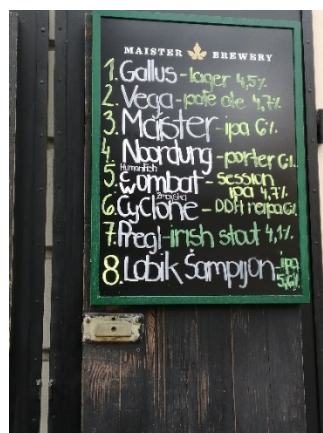 MAISTER BREWERY
1. Gallus - lager 4,5%
2. Vega - pale ale 4,7%
3. Maister - ipa 6%
4. Noordung - porter 6%
HumanFish
5. Wombat - session
ipa 4,7%
6. Cyclone - DDH neipa 6%
7. Pregl - irish stout 4,1%
8. Lobik Šampijon - ipa
5,6%